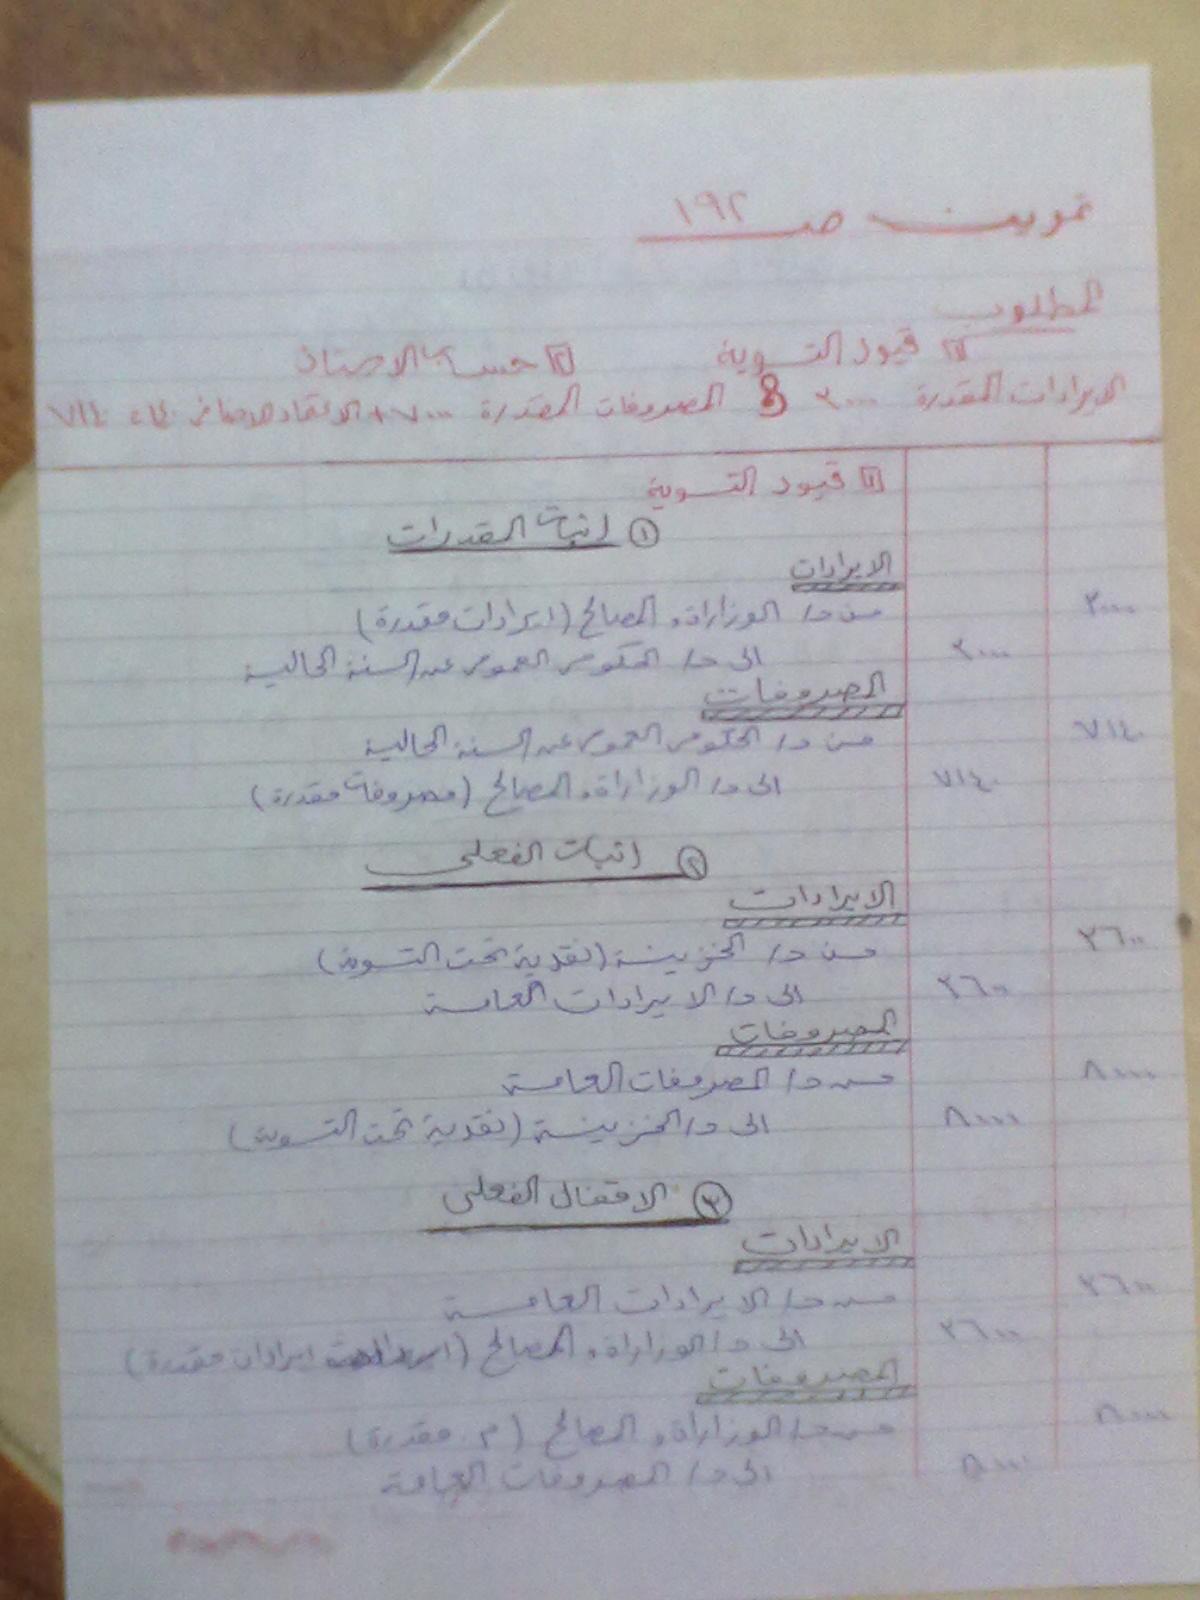 تمرين صـ ١٩٢
المطلوب
[١] قيود التسوية [٢] حساب الاحتياطى
الايرادات المقدرة ٣٠٠٠ & المصروفات المقدرة ٧٠٠٠ + الاعتماد الاضافى ١٤٠ = ٧١٤٠
[١] قيود التسوية
① اثبات المقدرات
الايرادات
٣٠٠٠ من ح/ الوزارات والمصالح (ايرادات مقدرة)
٣٠٠٠ الى ح/ الحكومى العمومى عن السنة الحالية
المصروفات
٧١٤٠ من ح/ الحكومى العمومى عن السنة الحالية
٧١٤٠ الى ح/ الوزارات والمصالح (مصروفات مقدرة)
② اثبات الفعلى
الايرادات
٢٦٠٠ من ح/ الخزينة (نقدية تحت التسوية)
٢٦٠٠ الى ح/ الايرادات العامة
المصروفات
٨٠٠٠ من ح/ المصروفات العامة
٨٠٠٠ الى ح/ الخزينة (نقدية تحت التسوية)
③ الاقفال الفعلى
الايرادات
٢٦٠٠ من ح/ الايرادات العامة
٢٦٠٠ الى ح/ الوزارات والمصالح (ايرادات مقدرة)
المصروفات
٨٠٠٠ من ح/ الوزارات والمصالح (م. مقدرة)
٨٠٠٠ الى ح/ المصروفات العامة